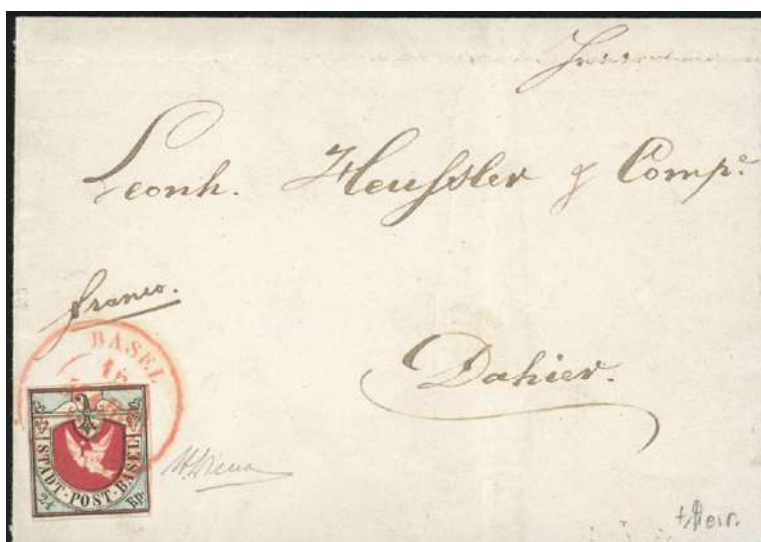 Leonh. Heußler & Comp.ᵉ
franco.
BASEL
16
Dahier.
STADT-POST-BASEL
2½ Rp.